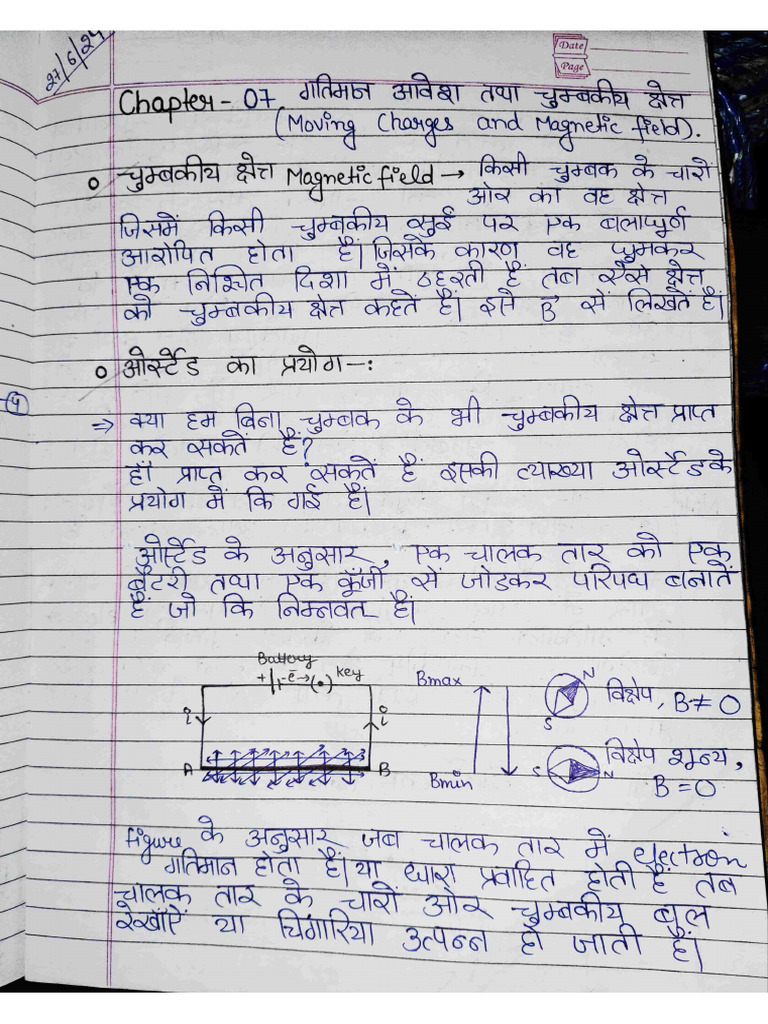 27/6/24
Date
Page
Chapter - 07 गतिमान आवेश तथा चुम्बकीय क्षेत्र
(Moving Charges and Magnetic field).
चुम्बकीय क्षेत्र Magnetic field → किसी चुम्बक के चारों
ओर का वह क्षेत्र
जिसमें किसी चुम्बकीय सुई पर एक बलाघूर्ण
आरोपित होता है। जिसके कारण वह घुमकर
एक निश्चित दिशा में ठहरती हैं तब ऐसे क्षेत्र
को चुम्बकीय क्षेत्र कहते हैं। इसे B सें लिखते हैं।
ओर्स्टेड का प्रयोग—:
⇒ क्या हम बिना चुम्बक के भी चुम्बकीय क्षेत्र प्राप्त
कर सकतें हैं?
हाँ। प्राप्त कर सकतें हैं इसकी व्याख्या ओर्स्टेड के
प्रयोग में कि गई हैं।
ओर्स्टेड के अनुसार, एक चालक तार को एक
बैटरी तथा एक कूँजी सें जोडकर परिपथ बनातें
हैं जो कि निम्नवत हैं।
Battery
+ - e→ (•) key
i i
A B
Bmax
Bmin
N
S
विक्षेप, B ≠ 0
S N
विक्षेप शून्य,
B = 0
figure के अनुसार जब चालक तार में electron
गतिमान होता हैं। या धारा प्रवाहित होती हैं तब
चालक तार के चारों ओर चुम्बकीय बल
रेखाऐं या चिंगारिया उत्पन्न हो जाती हैं।